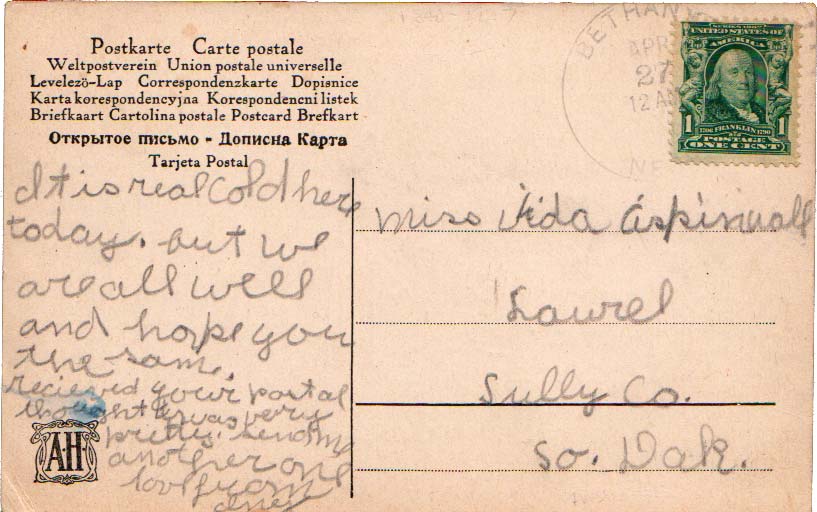 Postkarte Carte postale
Weltpostverein Union postale universelle
Levelezö-Lap Correspondenzkarte Dopisnice
Karta korespondencyjna Korespondencni listek
Briefkaart Cartolina postale Postcard Brefkart
Открытое письмо - Дописна Карта
Tarjeta Postal
It is real Cold here
today. but we
are all well
and hope you
the same.
recieved your postal
thought it was very
pretty. send me
another one
love from
A·H
BETHANY
APR
27
12 AM
SERIES 1902
UNITED STATES OF
AMERICA
1 1706 FRANKLIN 1790 1
POSTAGE
ONE CENT
Miss Vida Aspinwall
Laurel
Sully Co.
So. Dak.